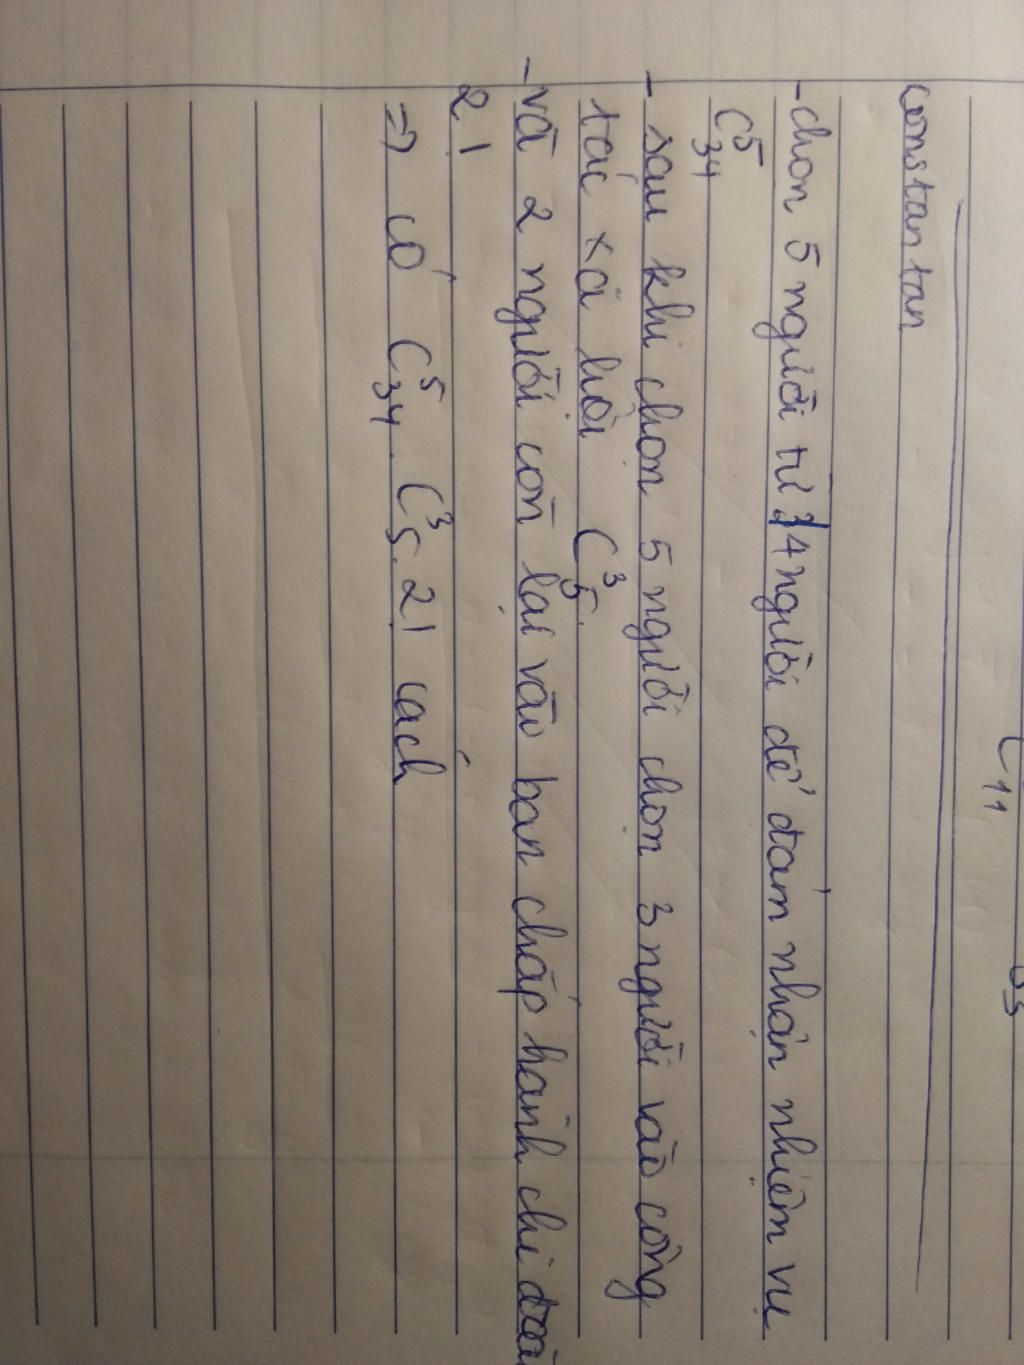 C
11
constantan
-chọn 5 người từ 34 người để đảm nhận nhiệm vụ
C⁵₃₄
- sau khi chọn 5 người chọn 3 người vào công
tác xã hội C³₅.
-và 2 người còn lại vào ban chấp hành chi đoà
2!
=> có C⁵₃₄. C³₅. 2! cách